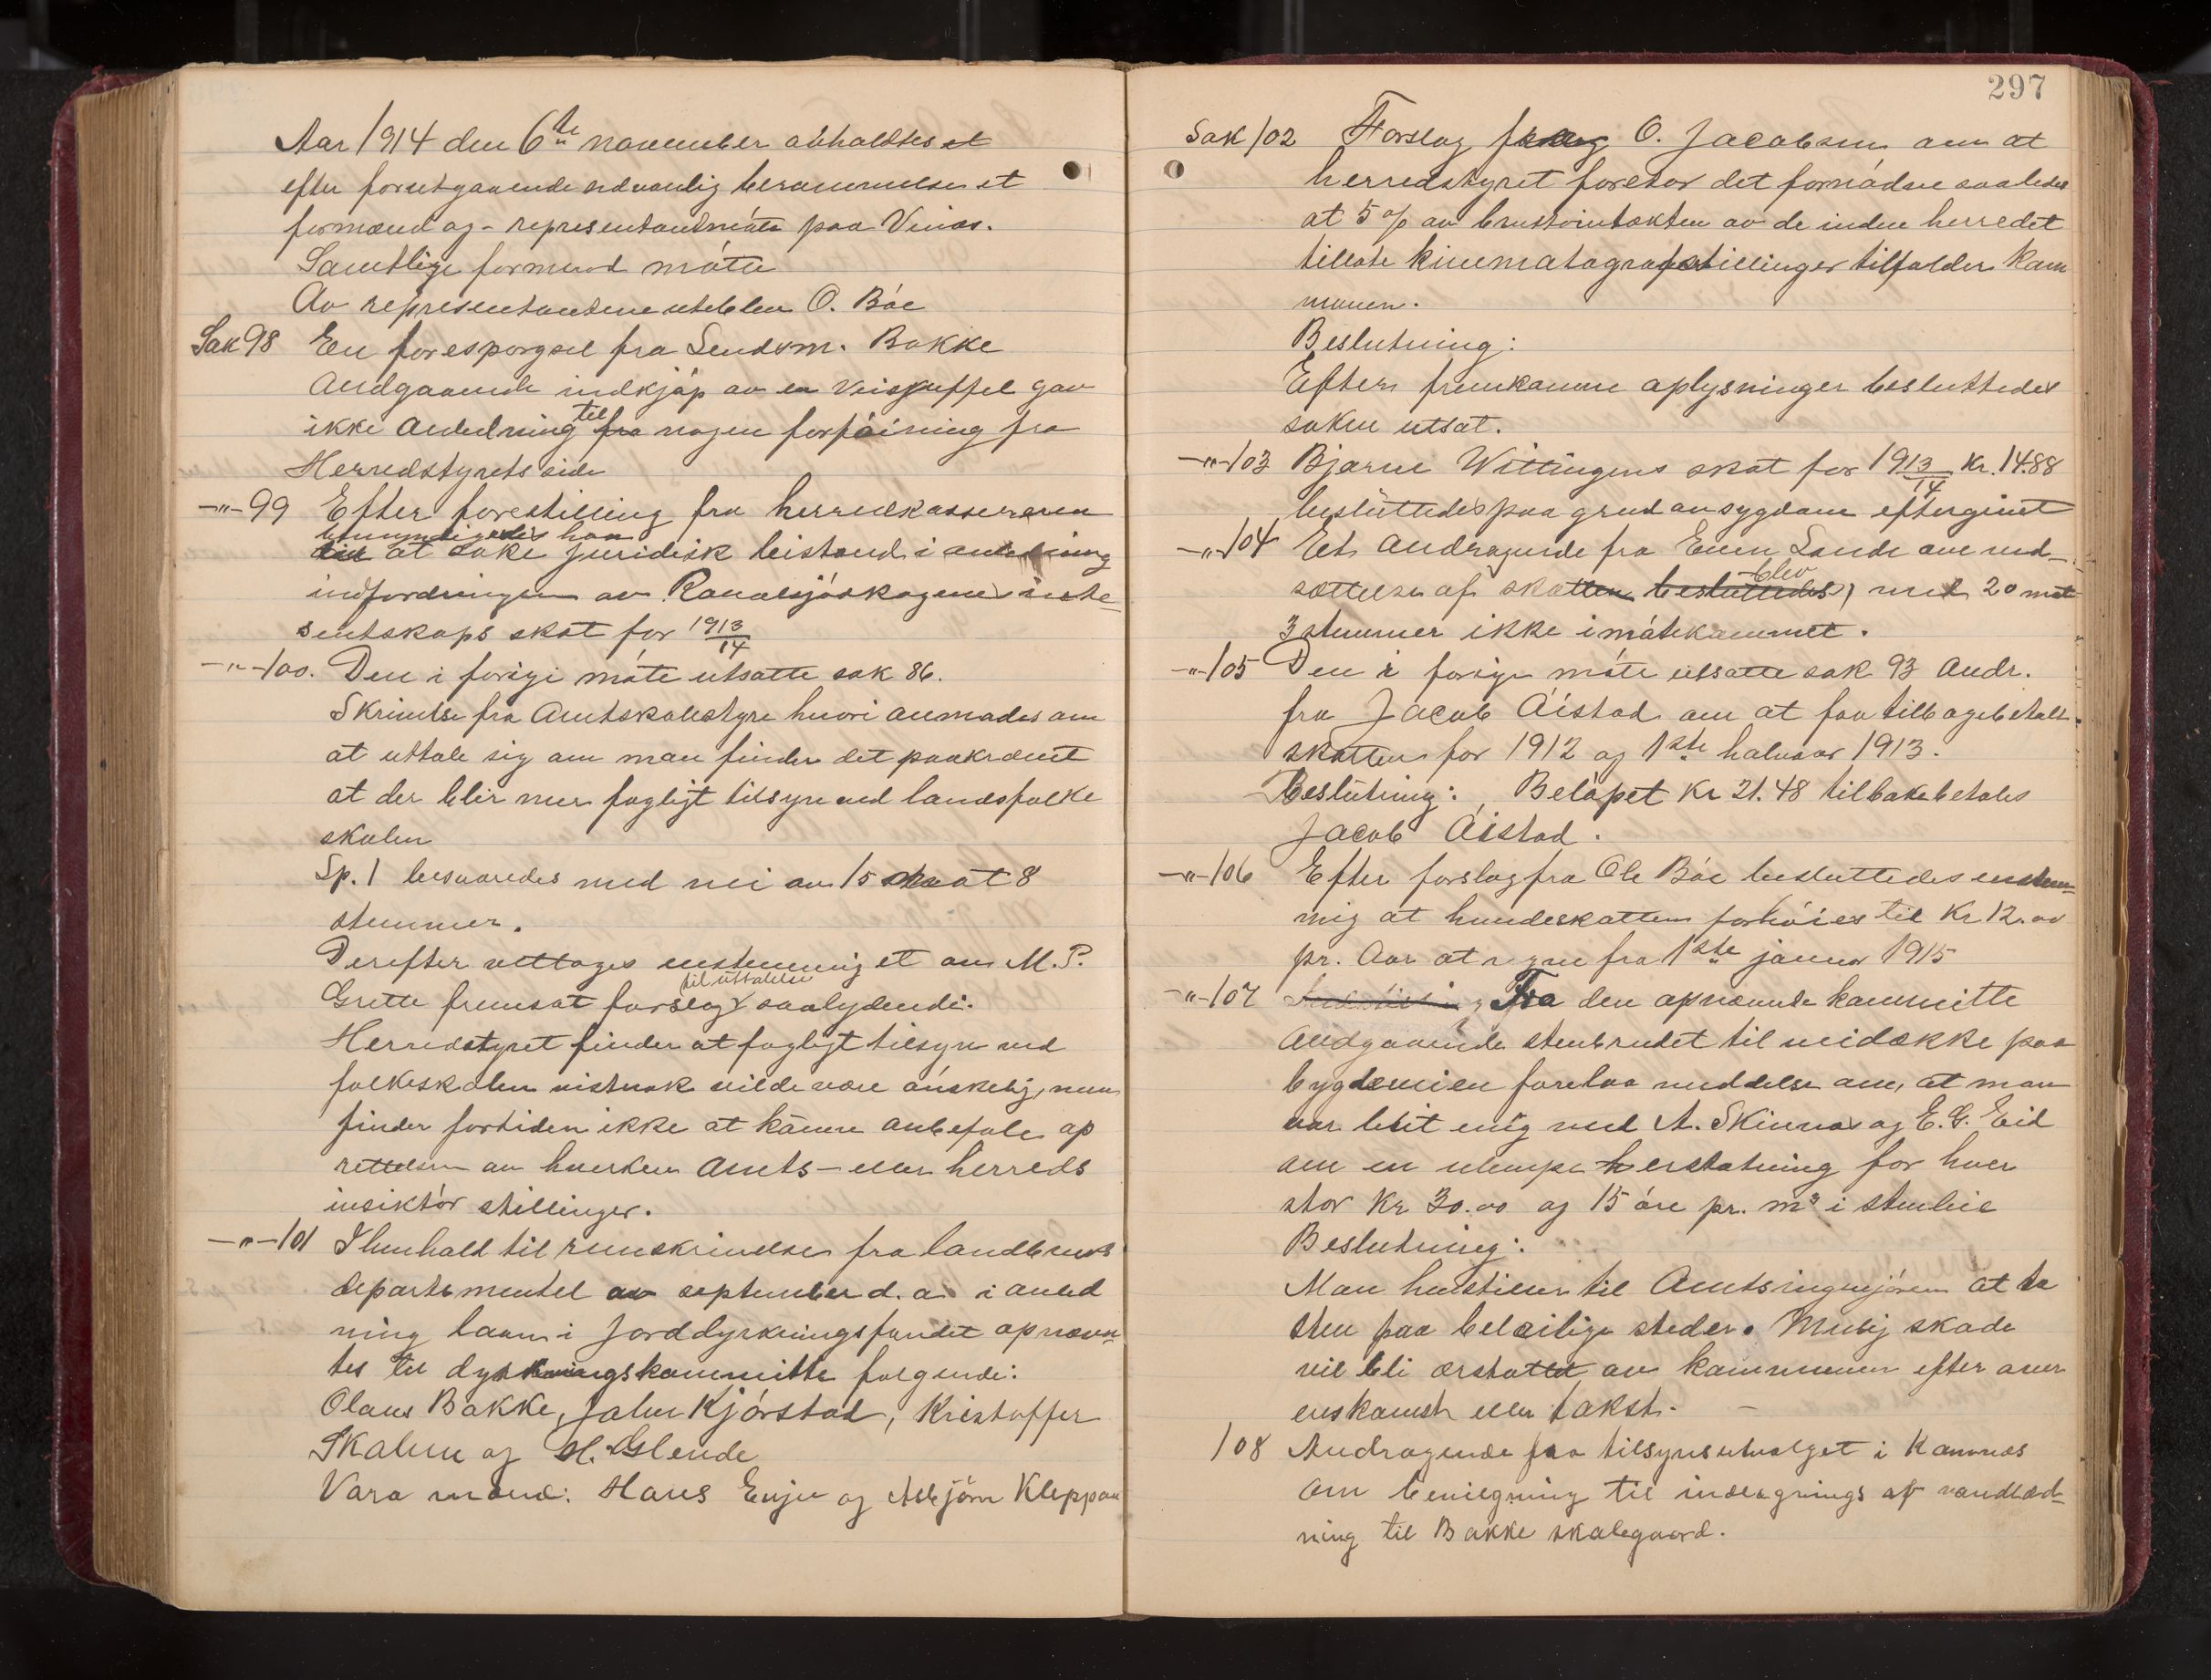 Aar 1914 den 6te november avholdtes et
efter forutgaaende sedvanlig berammelse et
formænd og - representantmöte paa Vinæs.
Samtlige formænd mötte
Av representantene uteblev O. Böe
Sak 98 En forespörgsel fra Lendsm. Bakke
Andgaaende indkjöp av en veiskuffel gav
ikke Anledning til fra nogen forföining fra
Herredstyrets side
-"- 99 Efter forestilling fra herredkassereren
bemyndigedes han
at söke Juridisk bistand i anledning
indfordringen av skogens inte
sentskaps skat for 1913/14
-"- 100. Den i forige möte utsatte sak 86.
Skrivelse fra Amtskolestyre hvori anmodes om
at uttale sig om man finder det paakrævet
at der blir mer fagligt tilsyn med landsfolke
skolen
Sp. 1 besvaredes med nei av 15 mot 8
stemmer.
Derefter vettoges enstemmig et av M. P.
Grette fremsat forslag til uttalelse saalydende:
Herredstyret finder at fagligt tilsyn med
folkeskolen vistnok vilde være önskelig, men
finder fortiden ikke at kunne anbefale op
rettelsen av hverken Amts- eller herreds
insiktör stillinger.
-"- 101 I henhold til rundskrivelse fra landbruks
departementet av september d. a. i anled
ning laan i Jorddyrkningsfondet opnævn
tes til dyrkningskommitte fölgende:
Olaus Bakke, John Kjörstad, Kristoffer
Skalun og H. Glende
Vara mænd: Hans Enju og Asbjörn Kleppan
297
Sak 102 Forslag fra O. Jacobsen om at
herredstyret foretar det fornödne saaledes
at 5% av bruttointækten av de inden herredet
tillate kinematografstillinger tilfalder kom
munen.
Beslutning:
Efter fremkomne oplysninger besluttedes
saken utsat.
-"- 103 Bjarne Wittingens skat for 1913/14 Kr. 14.88
besluttedes paa grund av sygdom eftergivet
-"- 104 Et Andragende fra Even Sande om ned-
sættelse af skatten besluttedes blev med 20 mot
3 stemmer ikke imötekommet.
-"- 105 Den i forige möte utsatte sak 93 Andr.
fra Jacob Öistad om at faa tilbagebetalt
skatten for 1912 og 1ste halvaar 1913.
Beslutning: Belöpet Kr 21.48 tilbakebetales
Jacob Öistad.
-"- 106 Efter forslag fra Ole Böe besluttedes enstem-
mig at hundeskatten forhöies til Kr 12.00
pr. Aar at regne fra 1ste januar 1915
-"- 107 Fra den opnævnte kommitte
Andgaaende stenbrudet til veidække paa
bygdeveien forelaa meddelse om, at man
var blit enig med A. Skinnes og E. G. Eid
om en ulempe erstatning for hver
stor Kr 30.00 og 15 öre pr. m3 i stenleie
Beslutning:
Man henstiller til Amtsingeniören at ta
sten paa beleilige steder. Mulig skade
vil bli erstattet av kommunen efter over
enskomst eller takst. -
108 Andragende fra tilsynsutvalget i Kamnæs
om bevilgning til indlægnings af vandled-
ning til Bakke skolegaard.